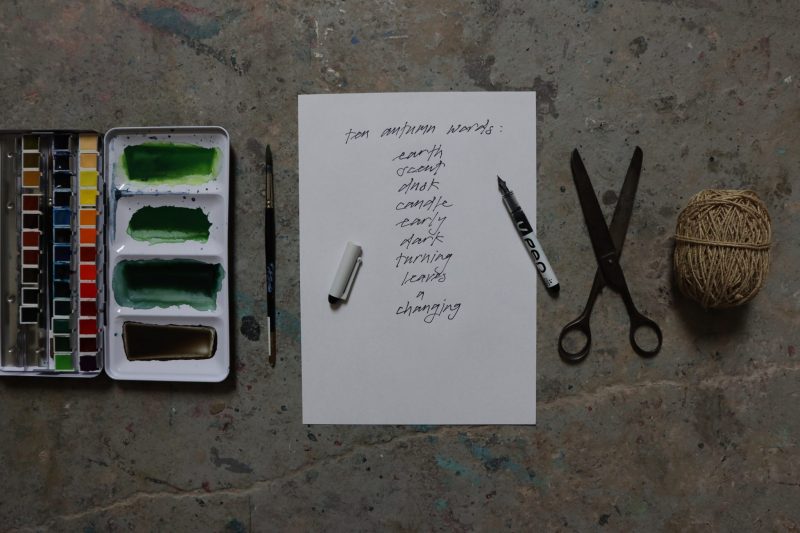 ten autumn words:
earth
scent
dusk
candle
early
dark
turning
leaves
a
changing